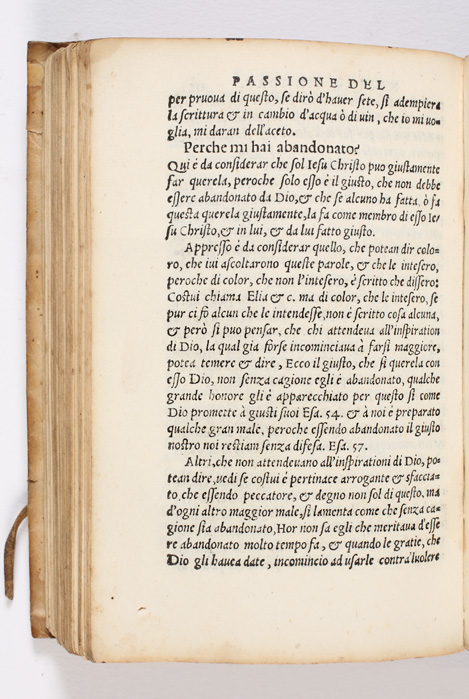 PASSIONE DEL
per pruoua di questo, se dirò d'hauer sete, si adempiera
la scrittura & in cambio d'acqua ò di uin, che io mi uo-
glia, mi daran dell'aceto.
Perche mi hai abandonato?
Qui è da considerar che sol Iesu Christo puo giustamente
far querela, peroche solo esso è il giusto, che non debbe
essere abandonato da Dio, & che se alcuno ha fatta, ò fa
questa querela giustamente, la fa come membro di esso Ie-
su Christo, & in lui, & da lui fatto giusto.
Appresso è da considerar quello, che potean dir colo-
ro, che iui ascoltarono queste parole, & che le intesero,
peroche di color, che non l'intesero, è scritto che dissero:
Costui chiama Elia & c. ma di color, che le intesero, se
pur ci fò alcun che le intendesse, non è scritto cosa alcuna,
& però si puo pensar, che chi attendeua all'inspiration
di Dio, la qual gia forse incominciaua à farsi maggiore,
potea temere & dire, Ecco il giusto, che si querela con
esso Dio, non senza cagione egli è abandonato, qualche
grande honore gli è apparecchiato per questo si come
Dio promette à giusti suoi Esa. 54. & à noi è preparato
qualche gran male, peroche essendo abandonato il giusto
nostro noi restiam senza difesa. Esa. 57.
Altri, che non attendeuano all'inspirationi di Dio, po-
tean dire, uedi se costui è pertinace arrogante & sfaccia-
to, che essendo peccatore, & degno non sol di questo, ma
d'ogni altro maggior male, si lamenta come che senza ca-
gione sia abandonato, Hor non sa egli che meritaua d'esse
re abandonato molto tempo fa, & quando le gratie, che
Dio gli hauea date, incomincio ad usarle contra'luolere